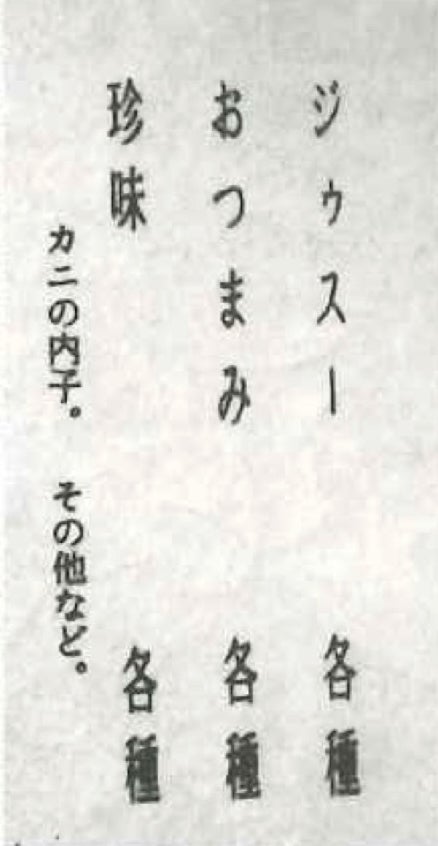 ジゥスー 各種
おつまみ 各種
珍味 各種
カニの内子。 その他など。